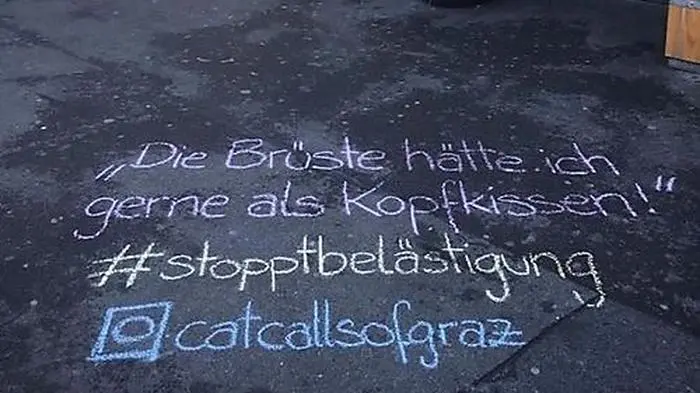 „Die Brüste hätte ich
gerne als Kopfkissen!“
#stopptbelästigung
catcallsofgraz